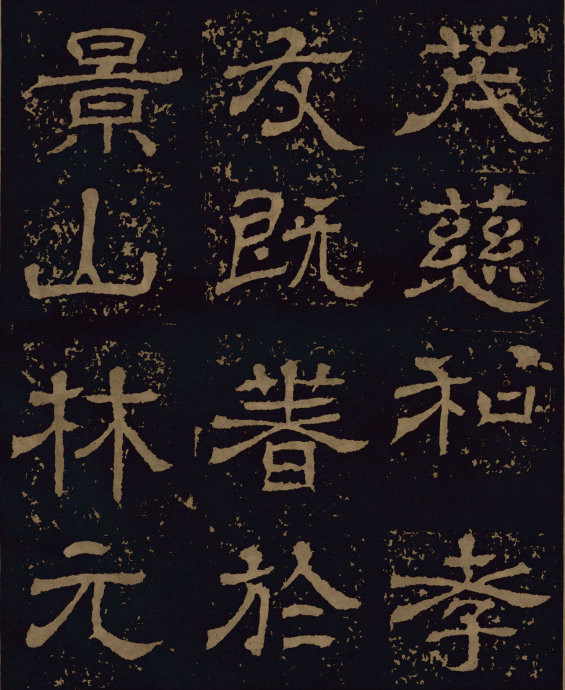 茂慈和孝
友既著於
景山林元